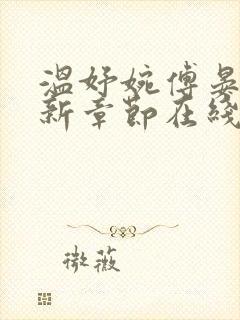 温妤婉傅晏
新章節在綫
微薇